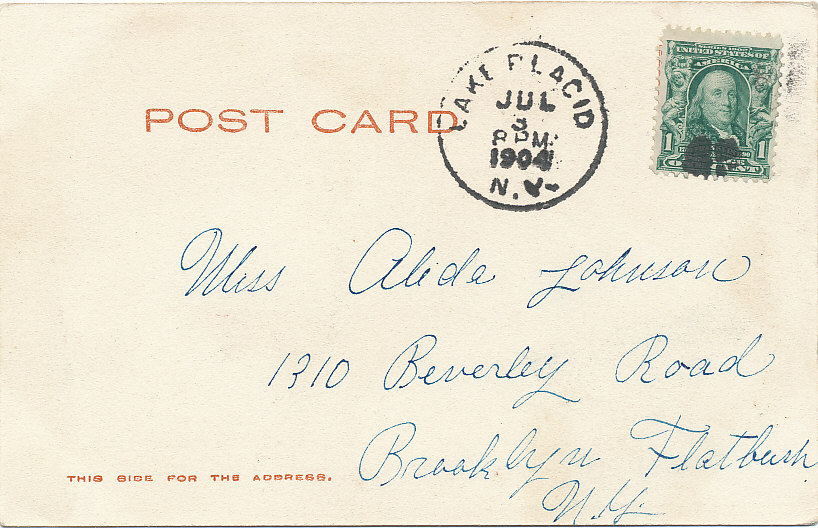 SERIES 1902
UNITED STATES OF
AMERICA
POST CARD
LAKE PLACID
JUL
3
PM
1904
N.Y.
1 1
Miss Alida Johnson
1310 Beverley Road
Brooklyn Flatbush
N.Y.
THIS SIDE FOR THE ADDRESS.